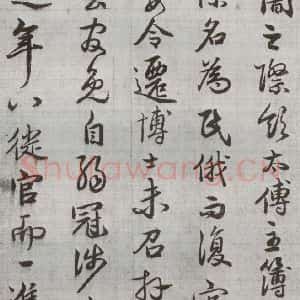 闇之際領太傅主簿
除名為民俄而復官
安令遷博士未召拜
官免自弱冠涉
年八徙官而一進
Shufawang.CN